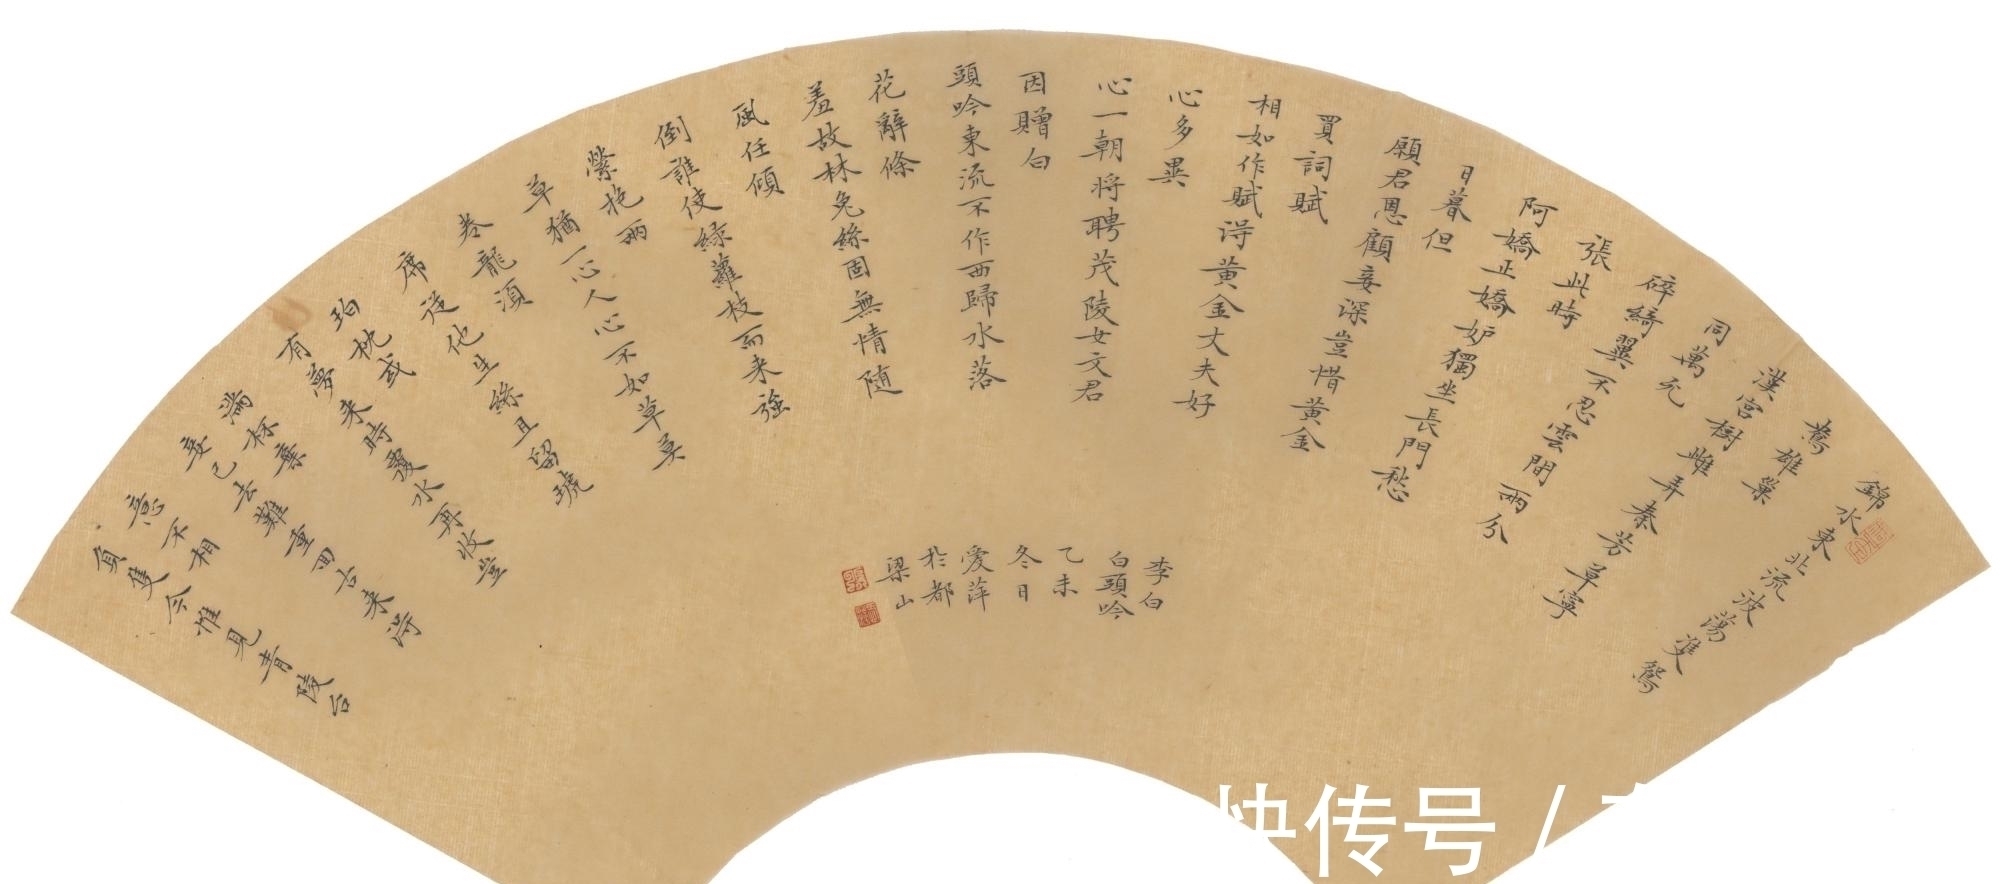 錦水東北流波蕩雙鴛
鴦雄巢
漢宮樹雌弄秦芳草寧
同萬死
碎綺翼不忍雲間兩分
張此時
阿嬌正嬌妒獨坐長門愁
日暮但
願君恩顧妾深豈惜黃金
買詞賦
相如作賦得黃金丈夫好
心多異
心一朝将聘茂陵女文君
因贈白
頭吟東流不作西歸水落
花辭條
羞故林兔絲固無情随
風任傾
倒誰使綠蘿枝而来強
縈抱兩
草猶一心人心不如草莫
卷龍須
席從他生絲且留琥
珀枕或
有夢来時覆水再收豈
滿杯棄
妾已去難重回古来得
意不相
負隻今惟見青陵台
李白
白頭吟
乙未
冬日
愛萍
於都
梁山
快传号 /